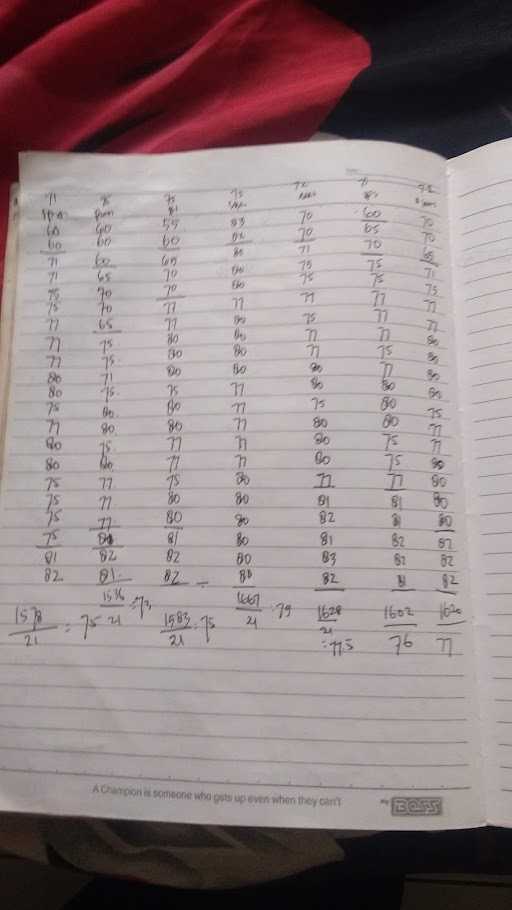 71 76 75 75 72 71 72
60 60 55 83 70 60 70
60 60 60 82 70 65 70
71 60 65 80 71 70 65
71 65 70 80 75 75 71
75 70 70 80 75 75 75
75 70 77 77 77 77 77
77 65 77 80 75 77 77
77 75 80 80 77 77 80
77 75 80 80 77 75 80
80 71 80 80 80 77 80
80 75 75 77 80 80 80
75 80 80 77 75 80 75
77 80 80 77 80 80 77
80 75 77 77 80 75 77
80 80 77 77 80 75 80
75 77 75 80 77 77 80
75 77 80 80 81 81 80
75 77 80 80 82 81 80
75 80 81 80 81 82 82
81 82 82 80 83 82 82
82 81 82 80 82 81 82
1578/21 = 75 1536/21 = 73 1583/21 = 75 1667/21 = 79 1628/21 = 77.5 1602 76 1620 77
A Champion is someone who gets up even when they can't
My BOSS